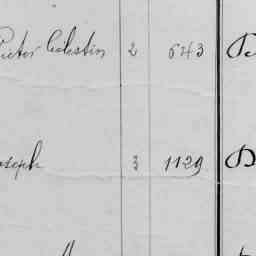 Pieter Celestin 2 643
oseph 3 1129